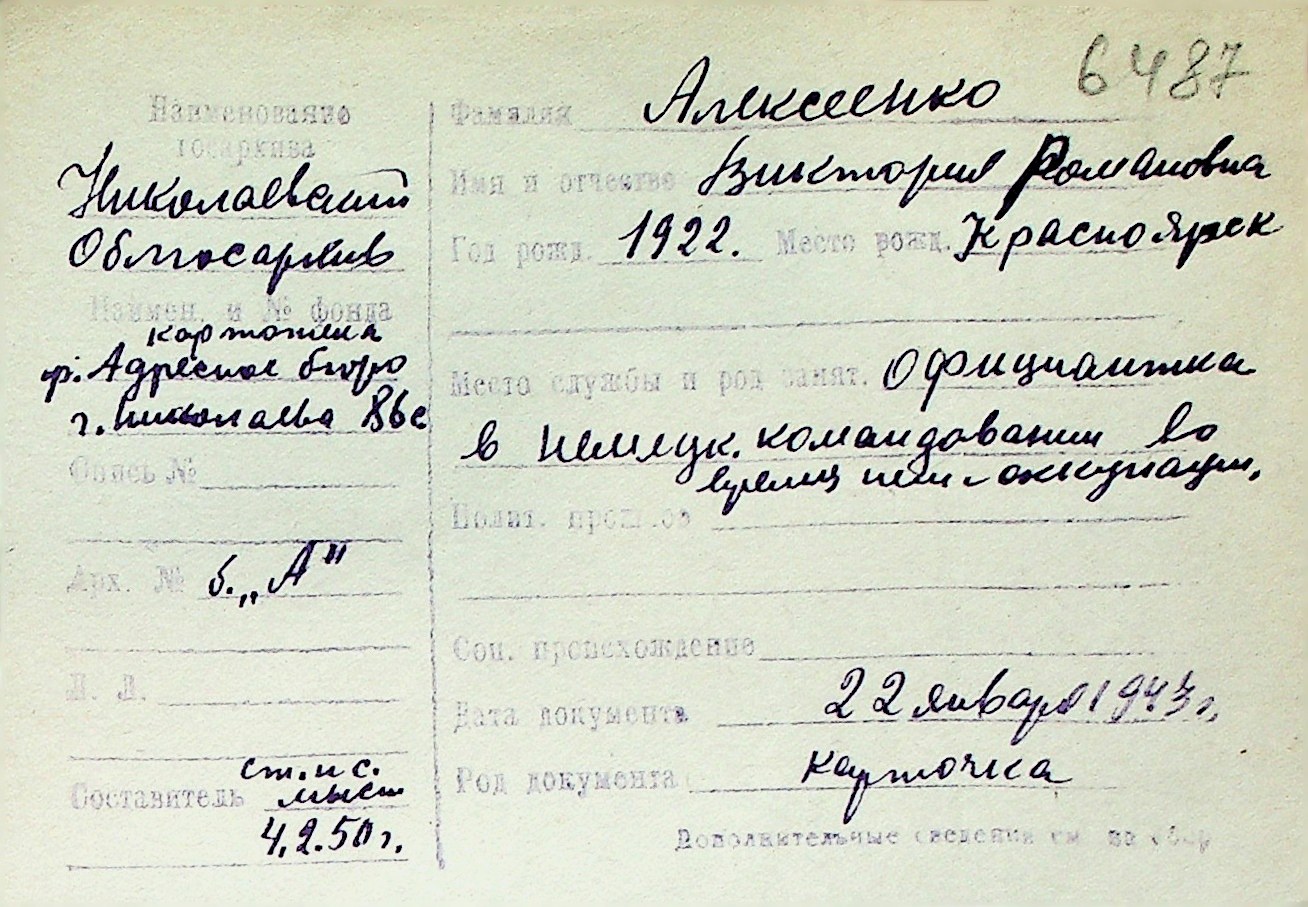 6487
Наименование
госархива
Николаевский
Облгосархив
Наимен. и № фонда
картотека
ф. Адресное бюро
г. Николаева
Опись №
Арх. № б. „А"
Л. Л.
Составитель
4.2.50 г.
Фамилия Алексеенко
Имя и отчество Виктория Романовна
Год рожд. 1922. Место рожд. Красноярск
Место службы и род занят. Официантка
в немецк. командовании во
время нем. оккупации.
Полит. прошлое
Соц. происхождение
Дата документа 22 января 1943 г.
Род документа карточка
Дополнительные сведения см. на обор